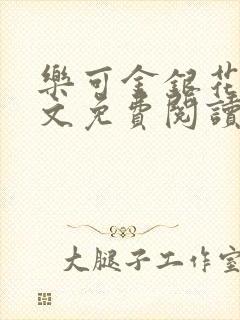 樂可金銀花
文免費閱讀
大腿子工作室